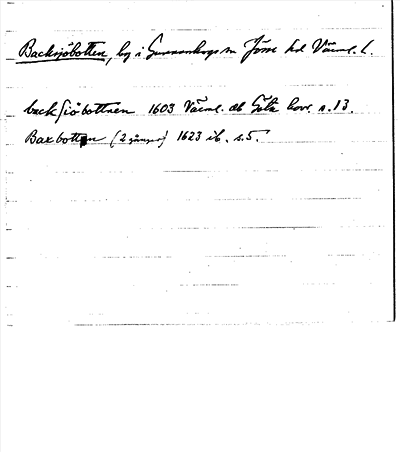 Backsjöbotten, by i Gunnarskogs sn Jösse hd Värml. l.
back sjöbottnen 1603 Värml. äb Göta hovr. s. 13.
Baxbotten (2 gånger) 1623 ib. s. 5.